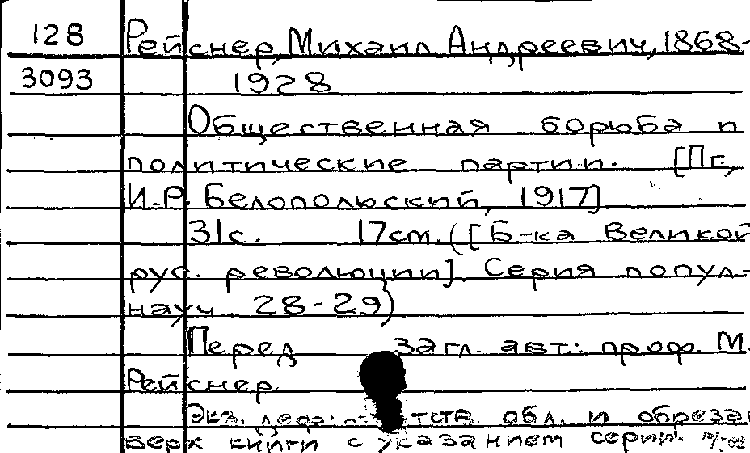 128 Рейснер, Михаил Андреевич, 1868-
3093 1928
Общественная борьба и
политические партии. [Пг,
И.Р. Белопольский, 1917]
31с. 17см. ([Б-ка Великой
рус. революции]. Серия попул-
науч 28-29)
Перед загл. авт: проф. М.
Рейснер.
Экз. обл. и обреза
верх книги с указанием серии.